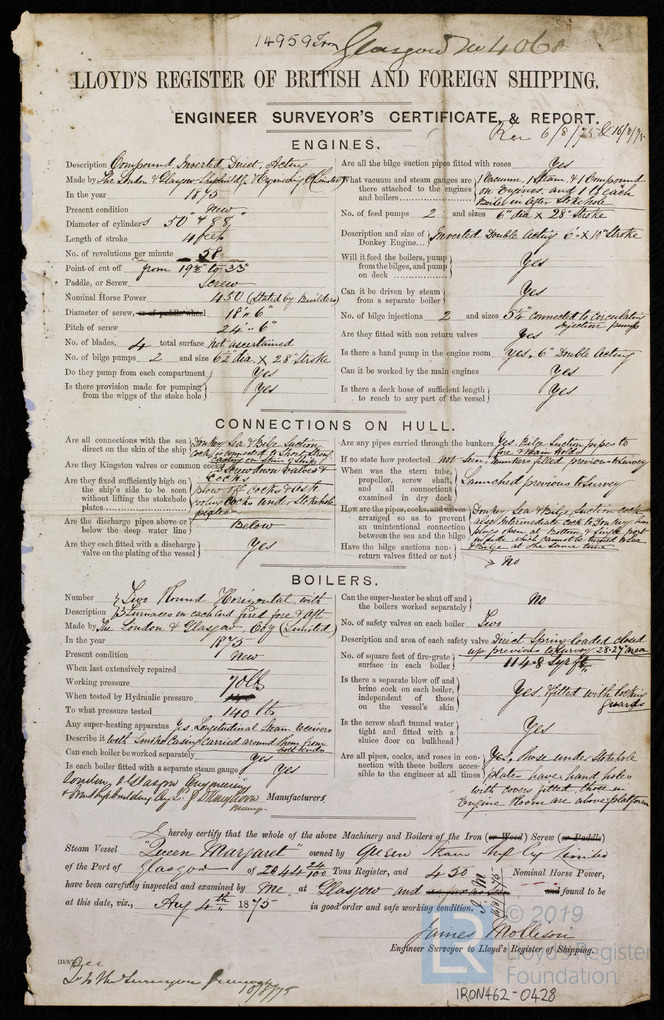 14959 Iron Glasgow No 4060
LLOYD'S REGISTER OF BRITISH AND FOREIGN SHIPPING.
ENGINEER SURVEYOR'S CERTIFICATE, & REPORT.
Rec 6/8/75 & 16/8/75
ENGINES.
Description Compound Inverted Direct-Acting
Made by The London & Glasgow
In the year 1875
Present condition New
Diameter of cylinders 50" & 88"
Length of stroke 4 feet
No. of revolutions per minute 58
Point of cut off from
Paddle, or Screw Screw
Nominal Horse Power 450 (Stated by Builders)
Diameter of screw, or of paddle wheel 18" 6"
Pitch of screw 24" 6"
No. of blades, 4 total surface not ascertained
No. of bilge pumps 2 and size 6½" dia. X 28" Stroke
Do they pump from each compartment Yes
Is there provision made for pumping from the wings of the stoke hole Yes
Are all the bilge suction pipes fitted with roses Yes
What vacuum and steam gauges are there attached to the engines and boilers 1 Vacuum, 1 Steam & 1 Compound
on Engines, and 1 to each
Boiler in After Stokehole
No. of feed pumps 2 and sizes 6" dia X 28" Stroke
Description and size of Donkey Engine Inverted Double Acting 6" X 10" Stroke
Will it feed the boilers, pump from the bilges, and pump on deck Yes
Can it be driven by steam from a separate boiler Yes
No. of bilge injections 2 and sizes 5½" connected to Circulating
Injection pumps
Are they fitted with non return valves Yes
Is there a hand pump in the engine room Yes, 6" Double Acting
Can it be worked by the main engines Yes
Is there a deck hose of sufficient length to reach to any part of the vessel Yes
CONNECTIONS ON HULL.
Are all connections with the sea direct on the skin of the ship Donkey Sea & Bilge Suction
Cock is connected to
casting on skin of ship
Are they Kingston valves or common cocks Screwdown Valves &
Cocks
Are they fixed sufficiently high on the ship's side to be seen without lifting the stokehole plates Blow off Cocks
Cocks under Stokehole
plates
Are the discharge pipes above or below the deep water line Below
Are they each fitted with a discharge valve on the plating of the vessel Yes
Are any pipes carried through the bunkers Yes Bilge Suction pipes to
fore & Main Holds
If so state how protected not seen, bunkers filled previous to survey
When was the stern tube, propeller, screw shaft, and all connections examined in dry dock Launched previous to survey
How are the pipes, cocks, and valves arranged so as to prevent an unintentional connection between the sea and the bilge Donkey Sea & Bilge, Suction cock
also Intermediate cock to Donkey has
plugs open at Bottom & Single port
in side which cannot be turned to Sea
& Bilge at the same time
Have the bilge suctions non-return valves fitted or not No
BOILERS.
Number Two Round Horizontal with
Description 3 furnaces in each end fired fore & aft
Made by The London & Glasgow, Coy (Limited)
In the year 1875
Present condition New
When last extensively repaired
Working pressure 70 lbs
When tested by Hydraulic pressure
To what pressure tested 140 lb
Any super-heating apparatus Yes Longitudinal Steam receivers
Describe it with Smoke Casing carried around them from
Can each boiler be worked separately Yes
Is each boiler fitted with a separate steam gauge Yes
London & Glasgow Engineering
& Iron Shipbuilding Coy Ld Manufacturers.
Can the super-heater be shut off and the boilers worked separately No
No. of safety valves on each boiler Two
Description and area of each safety valve Direct Spring loaded closed
up previous to survey 28·27" area
No. of square feet of fire-grate surface in each boiler 114·8 Sqr ft
Is there a separate blow off and brine cock on each boiler, independent of those on the vessel's skin Yes. fitted with locking
guards
Is the screw shaft tunnel water tight and fitted with a sluice door on bulkhead Yes
Are all pipes, cocks, and roses in connection with these boilers accessible to the engineer at all times Yes, those under Stokehole
plates have hand holes
with covers fitted, those in
Engine Room are above platform
I hereby certify that the whole of the above Machinery and Boilers of the Iron (or Wood) Screw (or Paddle)
Steam Vessel "Queen Margaret" owned by Queen Steam Ship Coy Limited
of the Port of Glasgow of 2844 24/100 Tons Register, and 450 Nominal Horse Power,
have been carefully inspected and examined by Me at Glasgow and found to be
at this date, viz., Aug 4th 1875 in good order and safe working condition.
James Mollison
Engineer Surveyor to Lloyd's Register of Shipping.
To the Surveyors
10/8/75
© 2019
LR
Lloyd's Register
Foundation
IRON462-0428